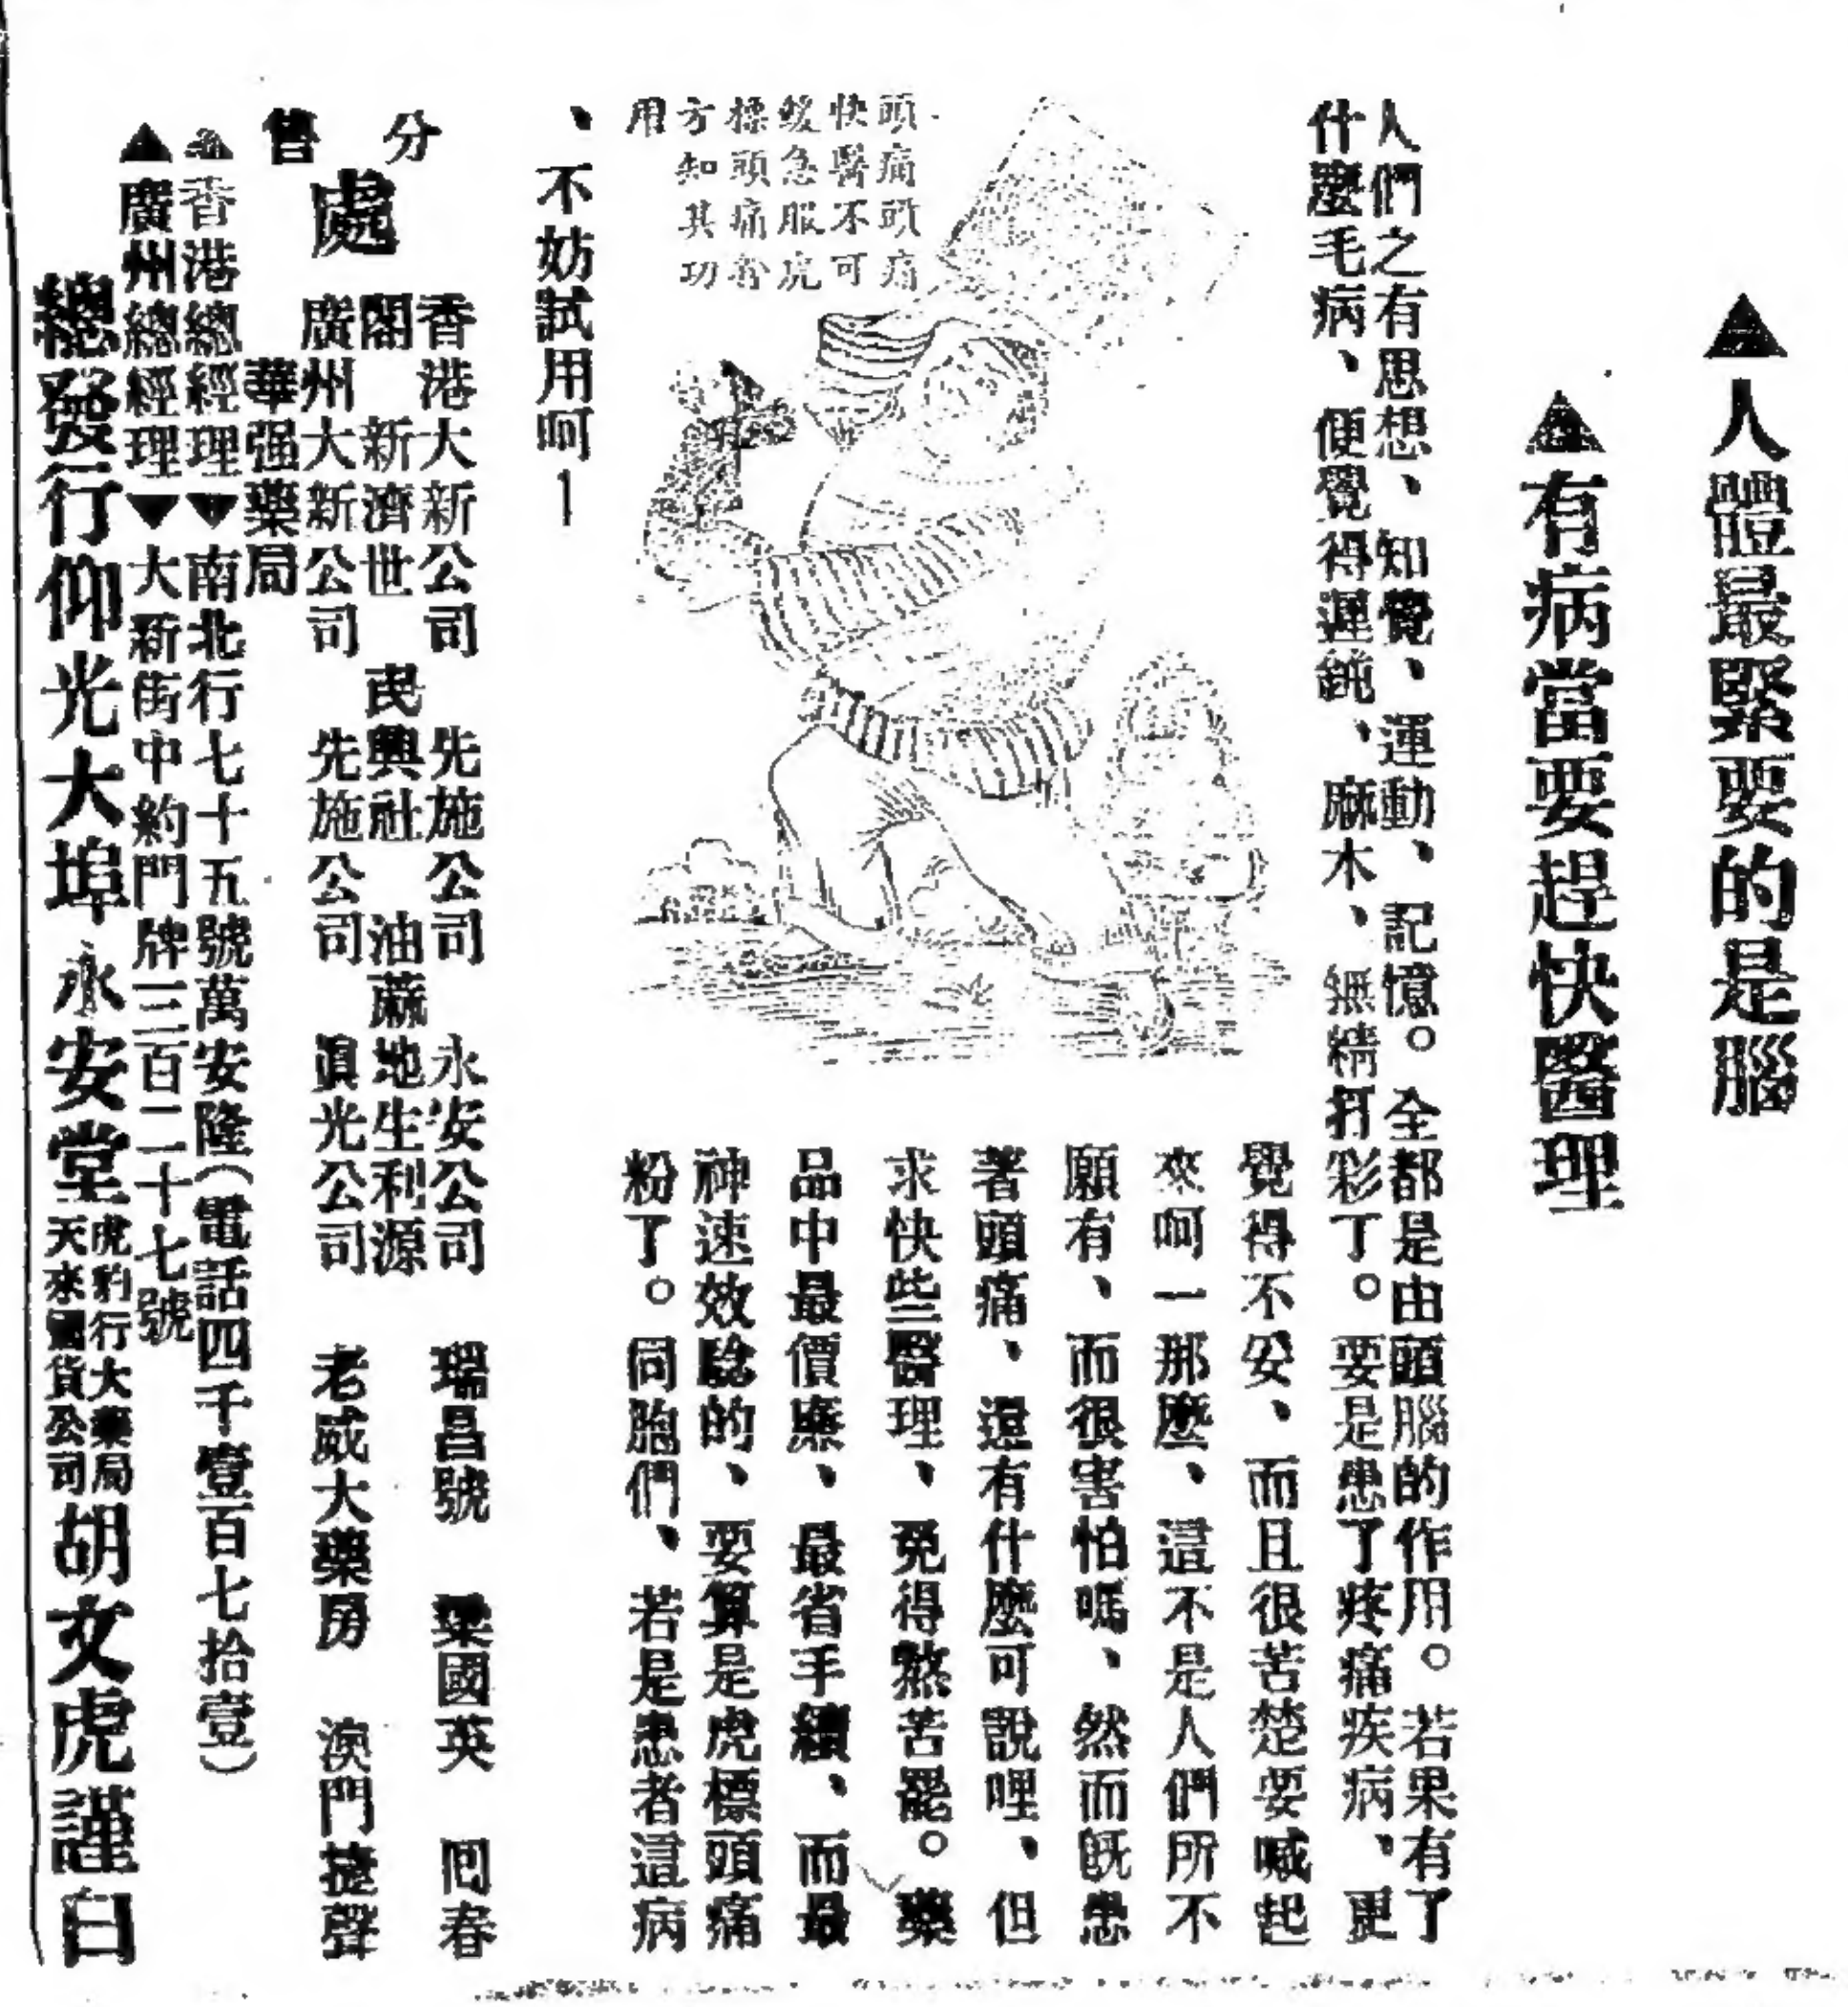 ▲人體最緊要的是腦
▲有病當要趕快醫理
人們之有思想、知覺、運動、記憶。全都是由頭腦的作用。若果有了
什麼毛病、便覺得遲鈍、麻木、無精打彩了。要是患了疼痛疾病、更
覺得不安、而且很苦楚要喊起
來呵一那麼、這不是人們所不
願有、而很害怕嗎、然而既患
著頭痛、還有什麼可說哩、但
求快些醫理、免得熬苦罷。藥
品中最價廉、最省手續、而最
神速效騐的、要算是虎標頭痛
粉了。同胞們、若是患者這病
頭痛頭痛
快醫不可
緩急服虎
標頭痛粉
方知其功
用
、不妨試用呵—
分售處
香港大新公司 先施公司 永安公司 瑞昌號 梁國英 囘春
閣 新濟世 民興社 油蔴地生利源
廣州大新公司 先施公司 真光公司 老威大藥房 澳門㨗聲
華强藥局
▲香港總經理▼南北行七十五號萬安隆(電話四千壹百七拾壹)
▲廣州總經理▼大新街中約門牌三百二十七號
總發行仰光大埠永安堂虎豹行大藥局天來國貨公司胡文虎謹白